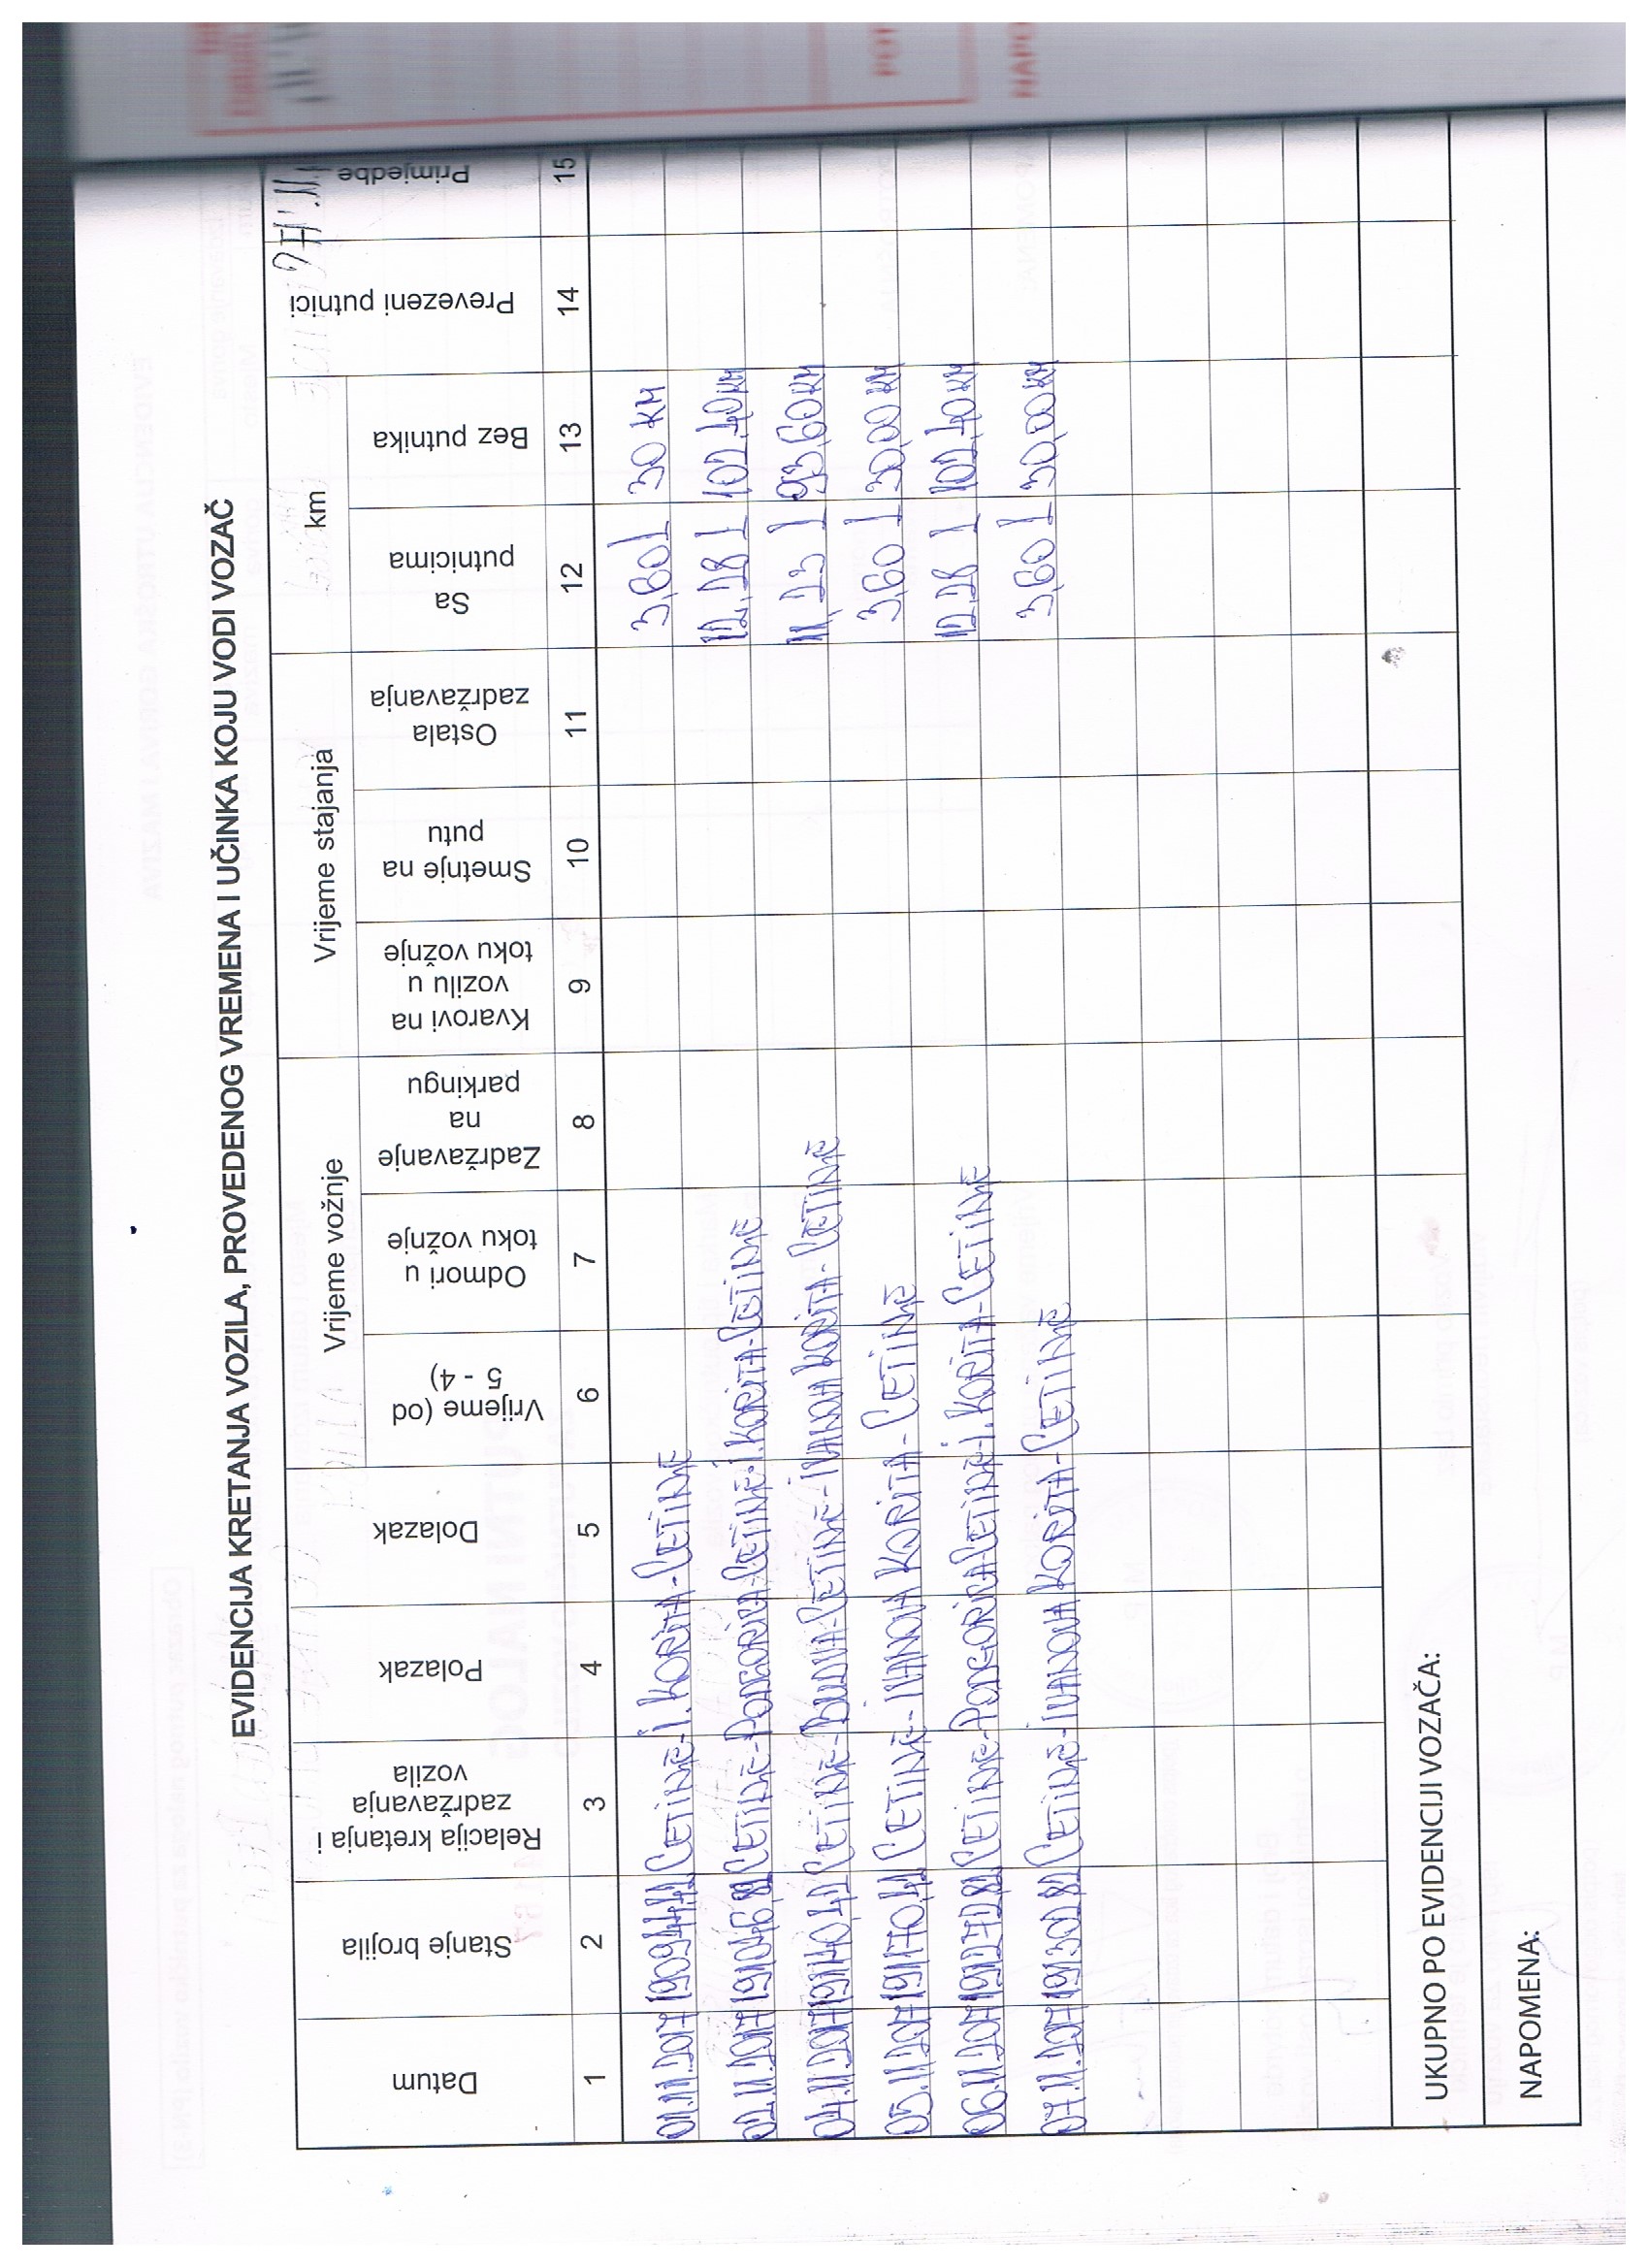 EVIDENCIJA KRETANJA VOZILA, PROVEDENOG VREMENA I UČINKA KOJU VODI VOZAČ
Vrijeme vožnje Vrijeme stajanja km
Datum Stanje brojila Relacija kretanja i zadržavanja vozila Polazak Dolazak Vrijeme (od 5 - 4) Odmori u toku vožnje Zadržavanje na parkingu Kvarovi na vozilu u toku vožnje Smetnje na putu Ostala zadržavanja Sa putnicima Bez putnika Prevezeni putnici Primjedbe
1 2 3 4 5 6 7 8 9 10 11 12 13 14 15
CETINJE-I. KORITA-CETINJE 3,60 l 30 KM
02.11.2017 CETINJE-PODGORICA-CETINJE-I. KORITA-CETINJE 12,28 l 102,40 KM
04.11.2017 CETINJE-BUDVA-CETINJE-IVANOVA KORITA-CETINJE 11,23 l 93,60 KM
05.11.2017 CETINJE-IVANOVA KORITA-CETINJE 3,60 l 30,00 KM
06.11.2017 CETINJE-PODGORICA-CETINJE-I. KORITA-CETINJE 12,28 l 102,40 KM
07.11.2017 CETINJE-IVANOVA KORITA-CETINJE 3,60 l 30,00 KM
UKUPNO PO EVIDENCIJI VOZAČA:
NAPOMENA: